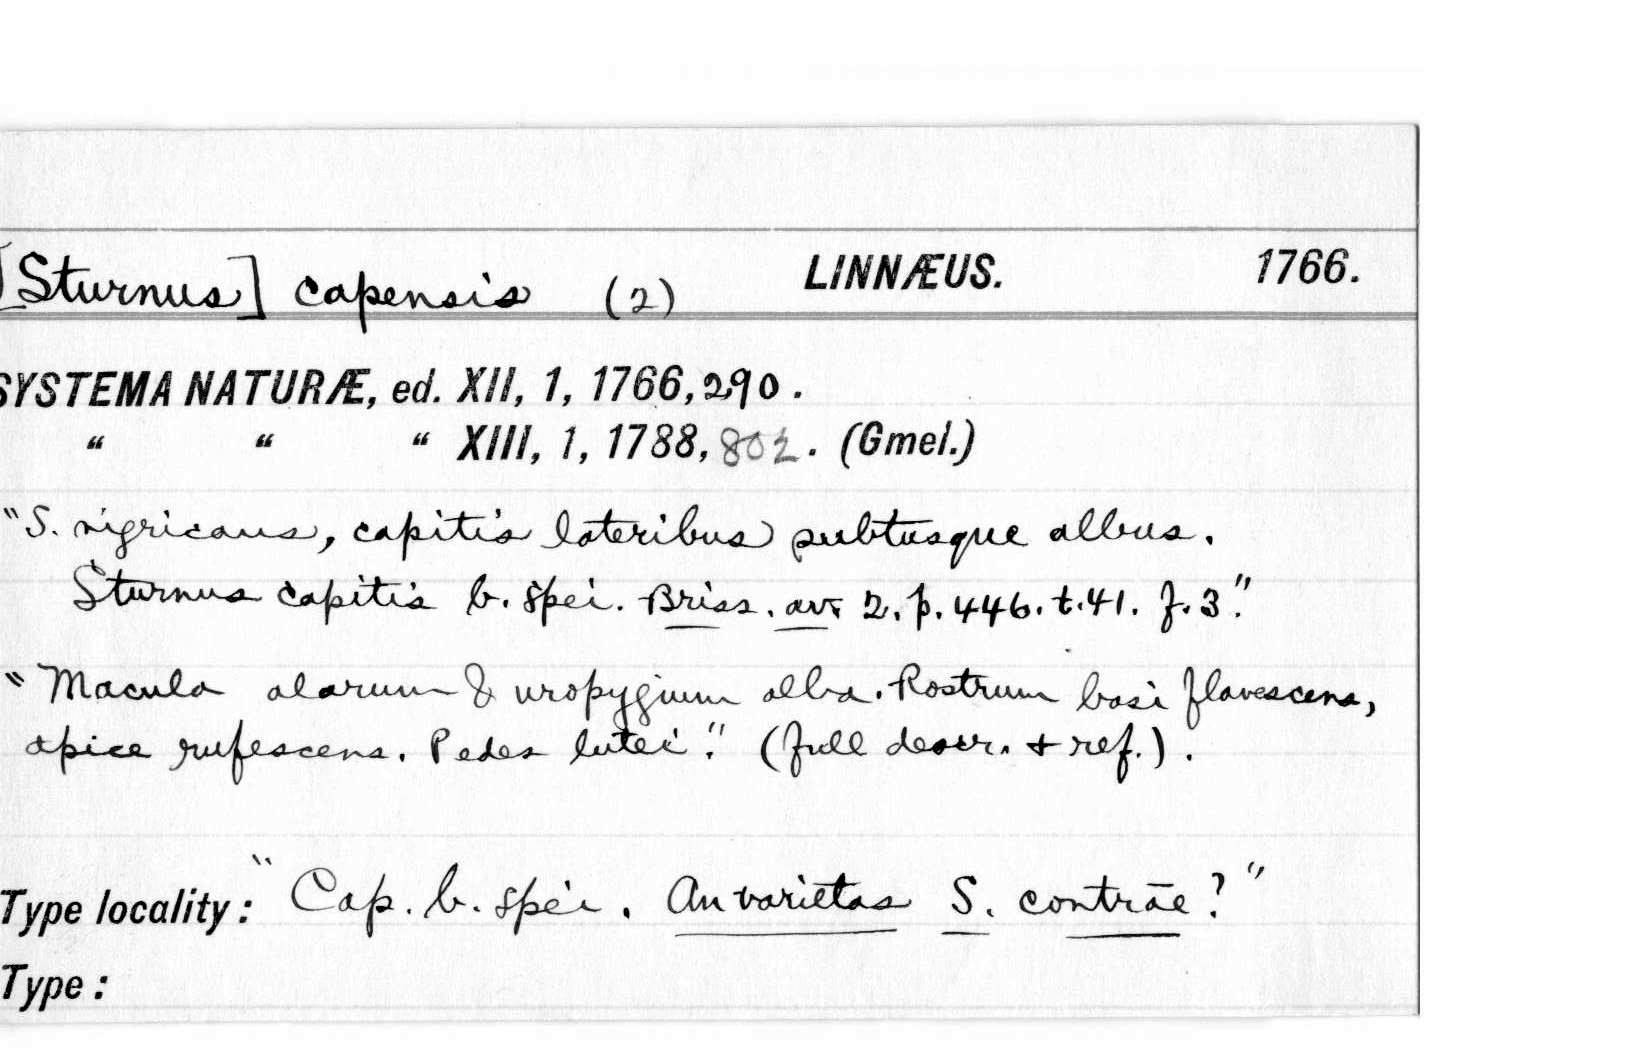 [Sturnus] capensis (2) LINNÆUS. 1766.
SYSTEMA NATURÆ, ed. XII, 1, 1766, 290.
" " " XIII, 1, 1788, 802. (Gmel.)
"S. nigricans, capitis lateribus subtusque albus.
Sturnus capitis b. spei. Briss. av. 2. p. 446. t. 41. f. 3."
"Macula alarum & uropygium alba. Rostrum basi flavescens,
apice rufescens. Pedes lutei." (full descr. + ref.).
Type locality: "Cap. b. spei. An varietas S. contrae?"
Type: